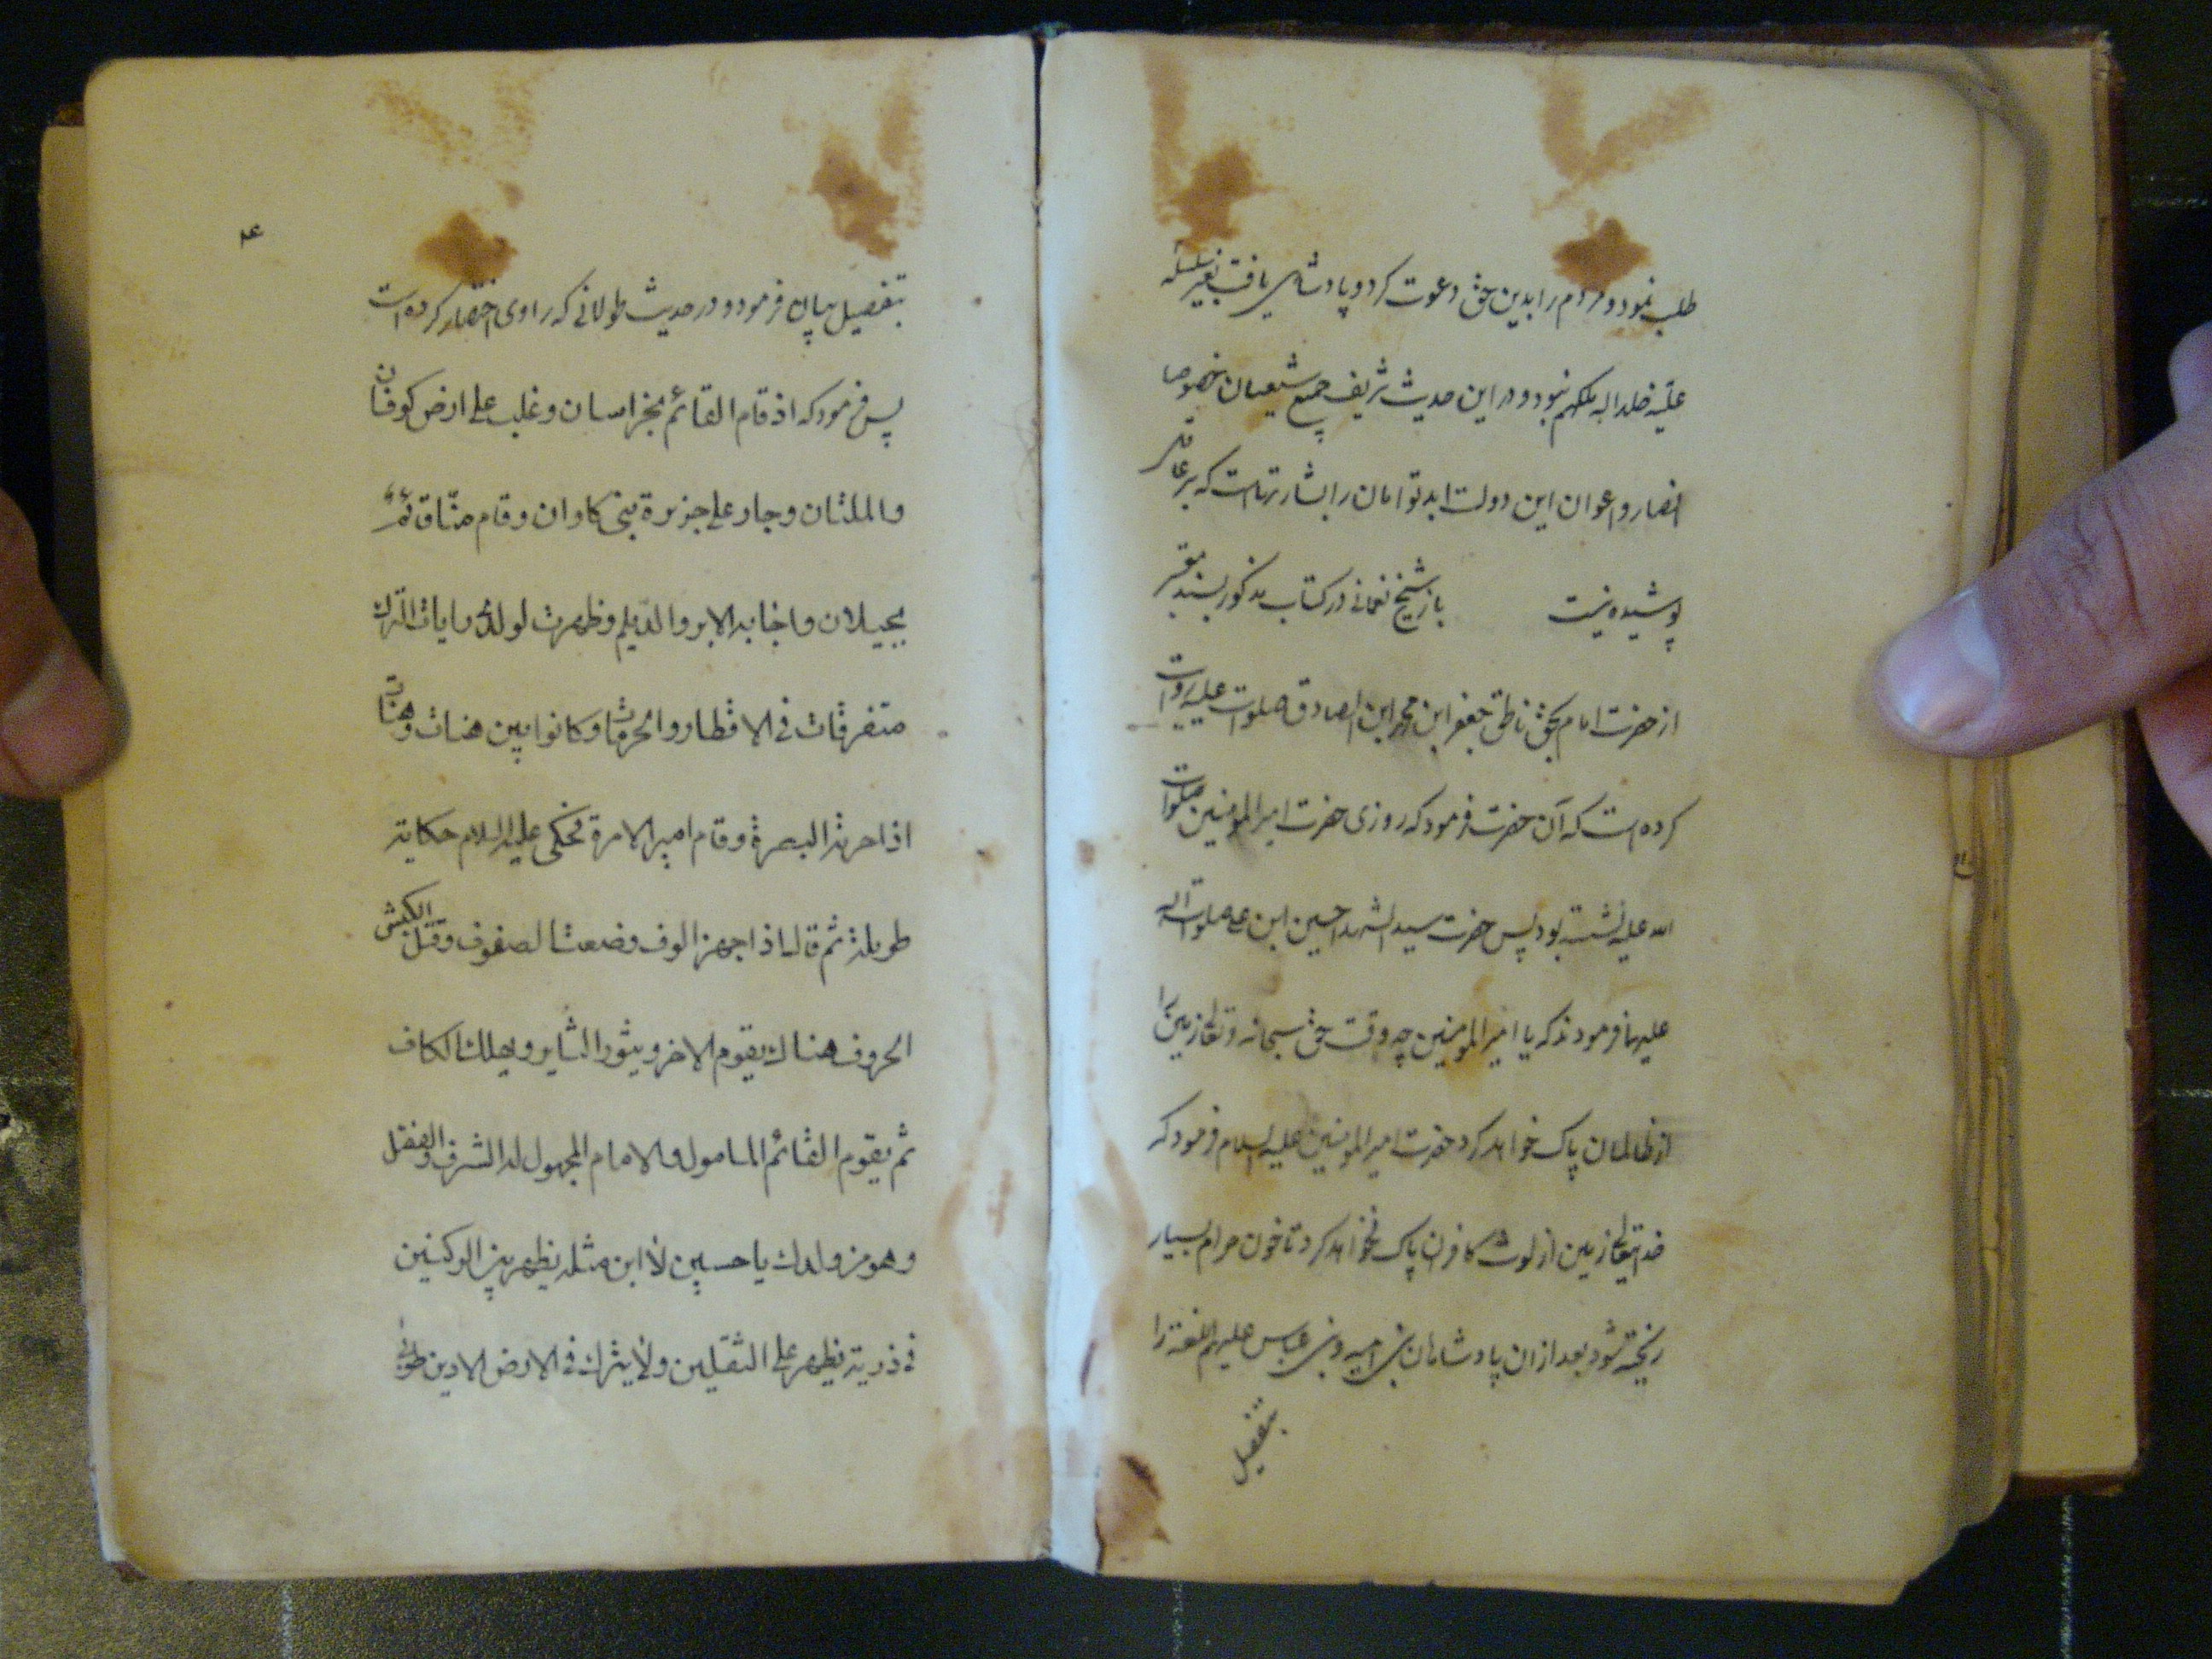 طلب نمود و مردم را بدین حق دعوت کرد و پادشاهی یافت بغیر سلسله
علیّه خلد الله ملکهم نبود و در این حدیث شریف جمیع شیعیان خصوصا
انصار و اعوان این دولت ابد توامان را بشارتهاست که بر عاقل
پوشیده نیست باز شیخ نعمانی در کتاب مذکور بسند معتبر
از حضرت امام بحق ناطق جعفر ابن محمد ابن الصادق صلوات علیه روایت
کرده است که آن حضرت فرمود که روزی حضرت امیر المومنین صلوات
الله علیه نشسته بود پس حضرت سید الشهدا حسین ابن علی صلوات الله
علیهما فرمودند که یا امیر المومنین چه وقت حق سبحانه و تعالی زمین را
از ظالمان پاک خواهد کرد حضرت امیر المومنین علیه السلام فرمود که
خدایتعالی زمین از لوث کافران پاک نخواهد کرد تا خون حرام بسیار
ریخته شود بعد از ان پادشاهان بنی امیه و بنی عباس علیهم اللعنة را
بتفصیل
۴
بتفصیل بیان فرمود و در حدیث طولانی که راوی اختصار کرده است
پس فرمود که اذ قام القائم بخراسان و غلب علی ارض کوفان
والملتان و جاز علی جزیرة بنی کاوان و قام منّا قائم
بجیلان و اجابه الابر والدّیلم و ظهرت لولدی رایات الترک
متفرقات فی الاقطار والحرمات و کانوا بین هنات و هنات
اذا خربة البصرة و قام امیر الامرة فحکی علیه السلام حکایة
طویلة ثم قال اذا جهز الوف و صفت الصفوف و قتل الکبش
الخروف هناک یقوم الاخر و یثور الثایر و یهلک الکافر
ثم یقوم القائم المامول والامام المجهول له الشرف والفضل
و هو من ولدک یا حسین لا ابن مثله یظهر بین الرکنین
فی ذریته یظهر علی الثقلین ولا یترک فی الارض الادین طوبی